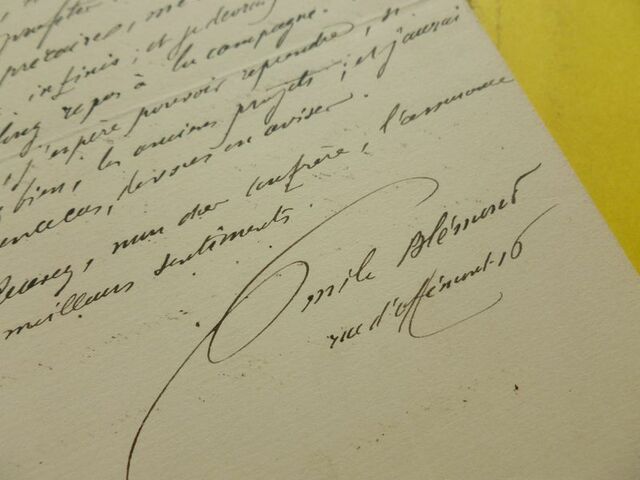 profiter
précaires, me
infinis, et je devrai
long repos à la campagne.
j'espère pouvoir reprendre, si
bien, les anciens projets, et j'aurai
en ce cas, à vous en aviser.
Recevez, mon cher confrère, l'assurance
meilleurs sentiments.
Emile Blémont
rue d'offémont. 16